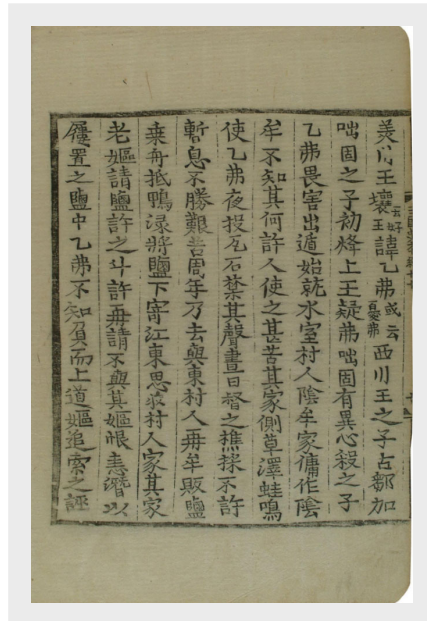 美川王一云好壤王諱乙弗或云憂弗西川王之子古鄒加
咄固之子初烽上王疑弟咄固有異心殺之子
乙弗畏害出遁始就水室村人陰牟家傭作陰
牟不知其何許人使之甚苦其家側草澤蛙鳴
使乙弗夜投瓦石禁其聲晝日督之樵採不許
暫息不勝艱苦周年乃去與東村人再牟販鹽
乗舟抵鴨淥將鹽下寄江東思收村人家其家
老嫗請鹽許之斗許再請不與其嫗恨恚潛以
屨置之鹽中乙弗不知負而上道嫗追索之誣